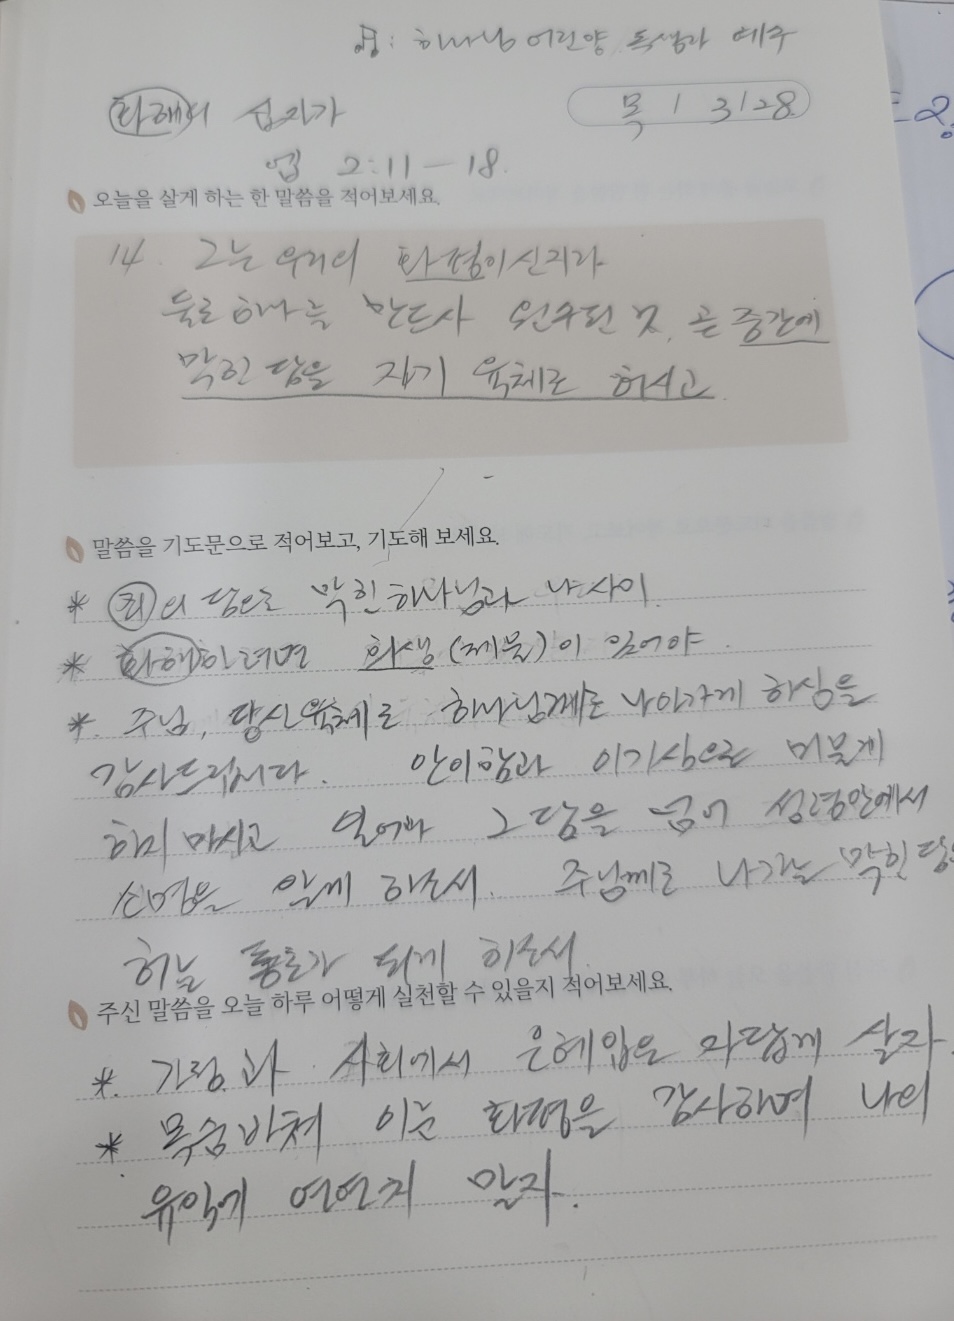 찬: 하나님 어린양 독생자 예수
화해의 십자가
목 / 3/28.
엡 2:11-18.
오늘을 살게 하는 한 말씀을 적어보세요.
14. 그는 우리의 화평이신지라
둘로 하나를 만드사 원수된 것, 곧 중간에
막힌 담을 자기 육체로 허시고.
말씀을 기도문으로 적어보고, 기도해 보세요.
* 죄의 담으로 막힌 하나님과 나 사이.
* 화해하려면 희생(제물)이 있어야.
* 주님, 당신 육체로 하나님께로 나아가게 하심을
감사드립니다. 안이함과 이기심으로 머물게
하지 마시고 열어 그 담을 넘어 성령안에서
알게 하소서. 주님께로 나가는 막힌 담을
허는 통로가 되게 하소서.
주신 말씀을 오늘 하루 어떻게 실천할 수 있을지 적어보세요.
* 가정과 사회에서 은혜입은 자답게 살자.
* 목숨바쳐 이룬 화평을 감사하며 나의
유익에 연연치 말자.